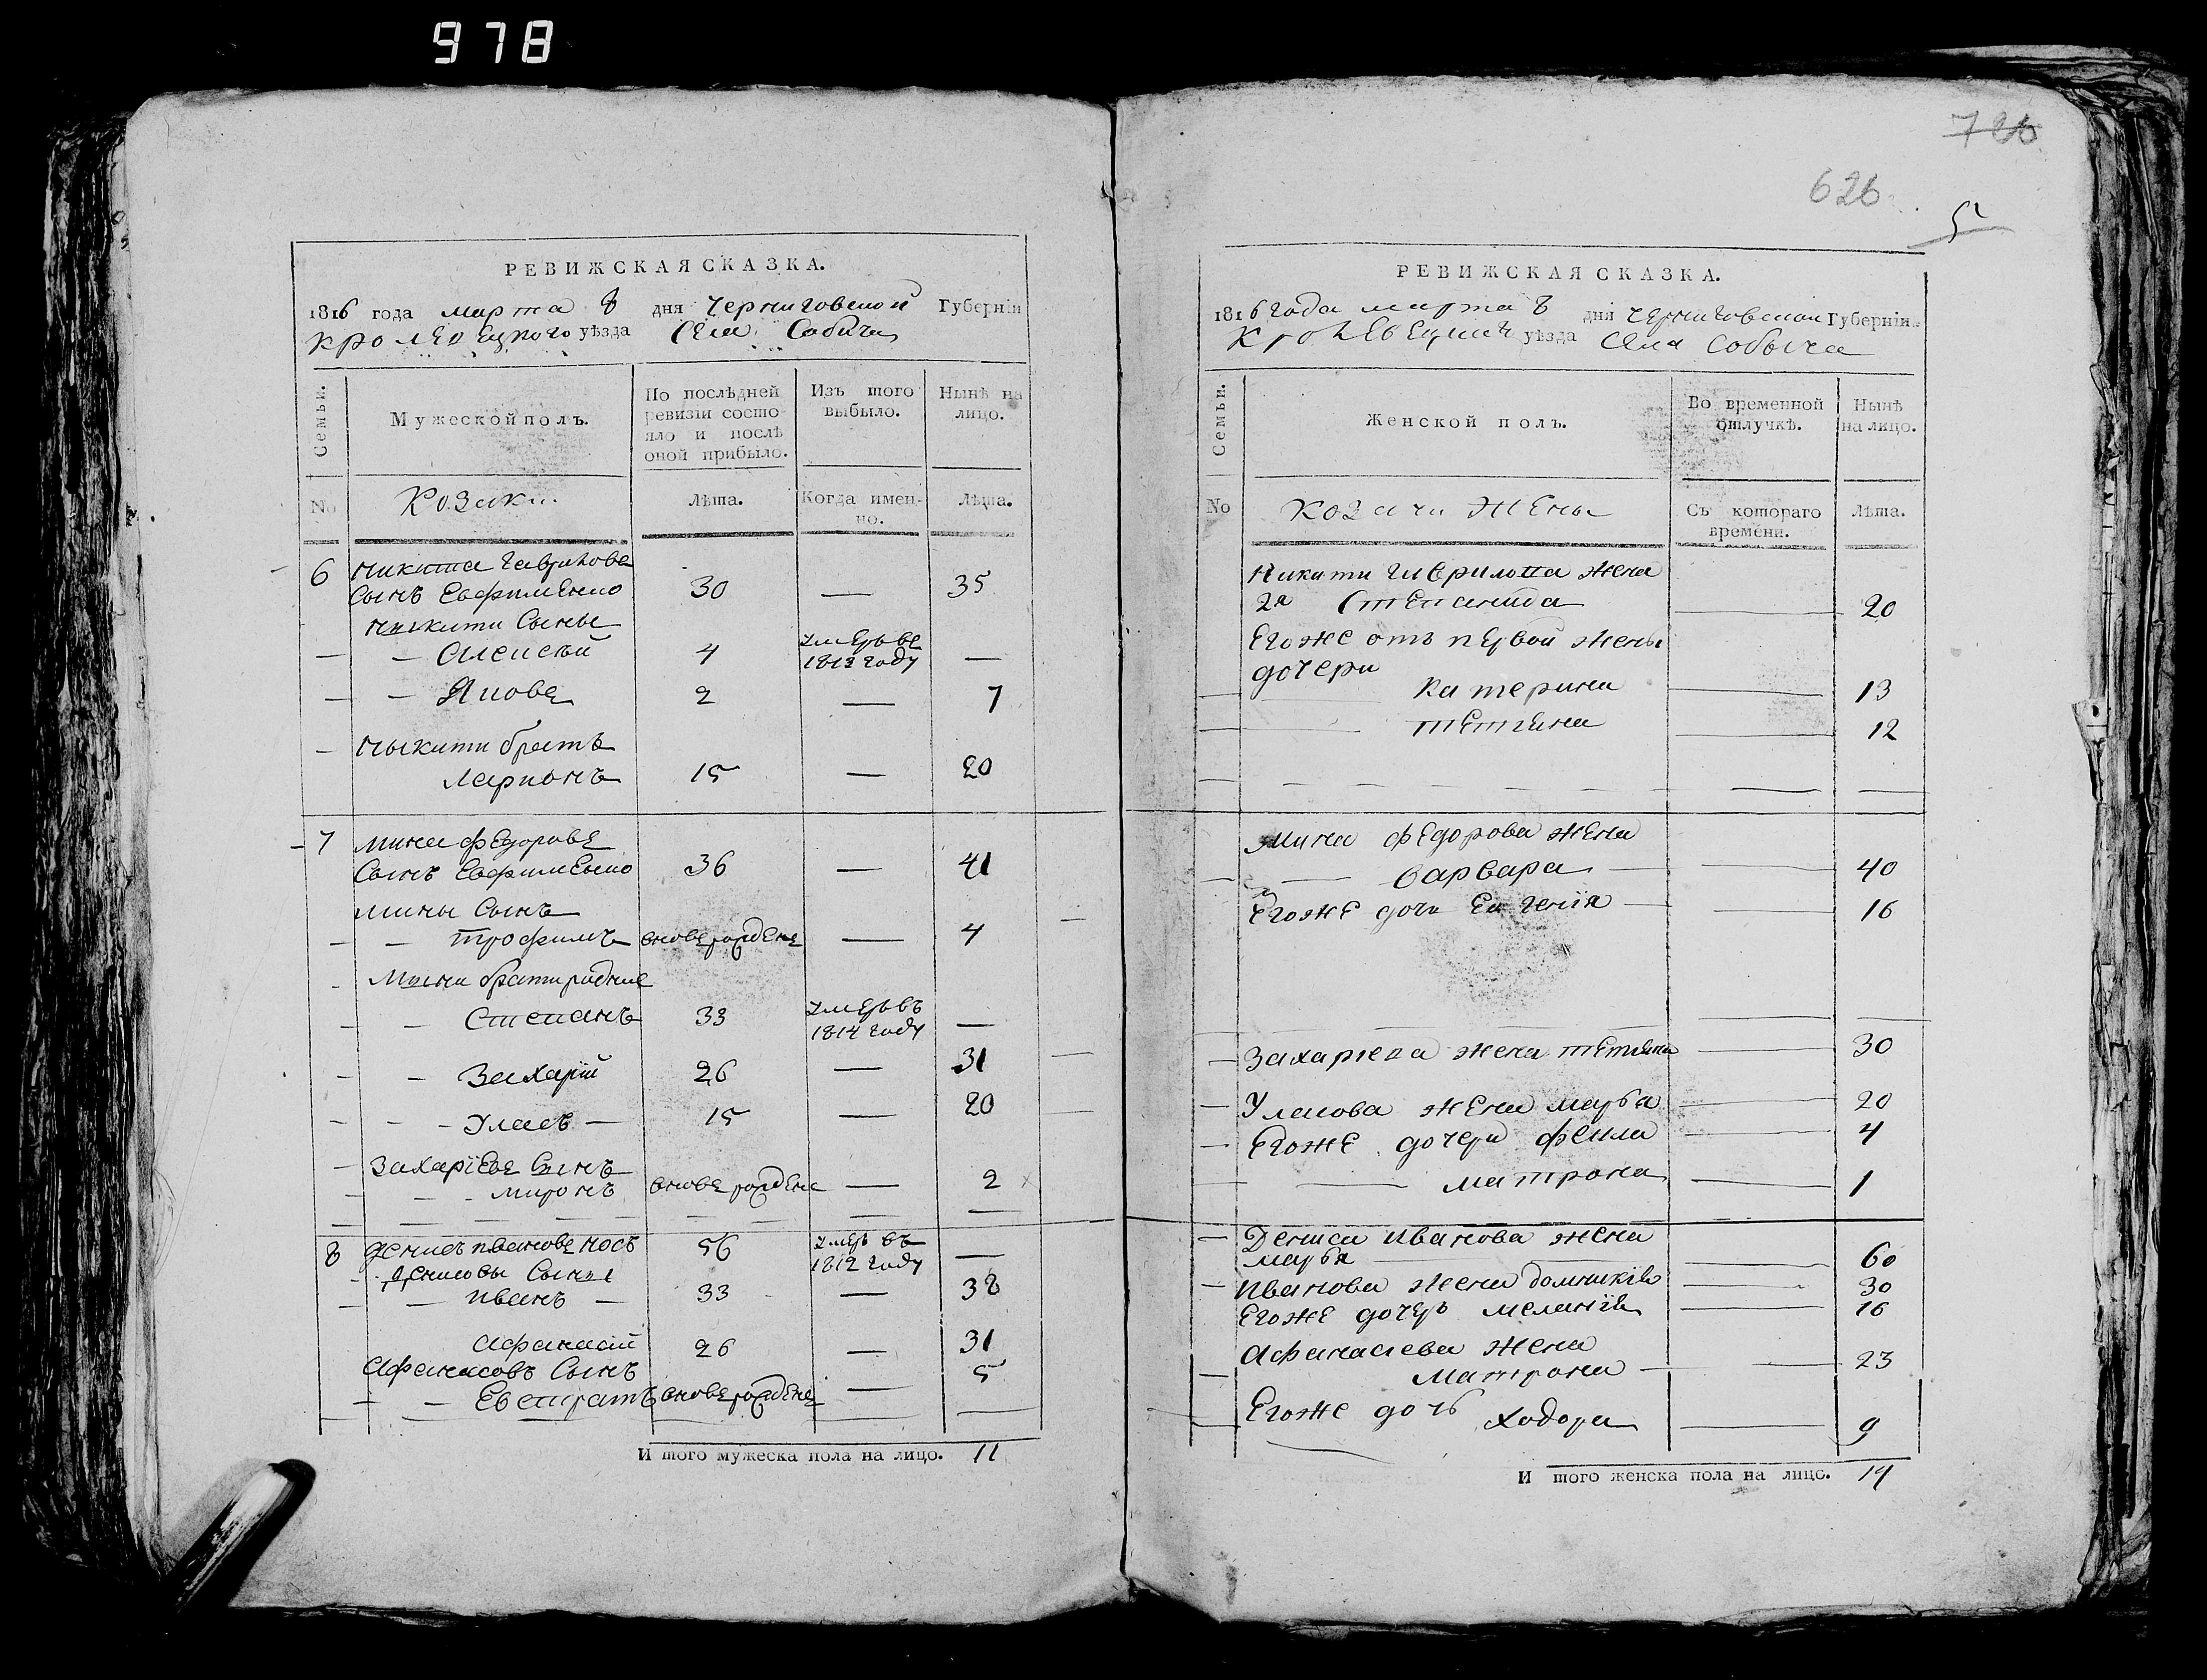 978
726
626
5
РЕВИЖСКАЯ СКАЗКА.
1816 года марта 8 дня Черниговской Губерніи
Кролевецкого уѣзда Села Собича
Семьи.
Мужеской полъ.
По послѣдней ревизіи состояло и послѣ оной прибыло.
Изъ того выбыло.
Нынѣ на лицо.
No
Козаки
Лѣта.
Когда именно.
Лѣта.
6 Никита Гавриловъ
Сынъ Евфименко 30 — 35
Никити Сыны
— — Алексѣй 4 Умеръ въ 1812 году —
— — Яковъ 2 — 7
— Никити братъ
Ларионъ 15 — 20
7 Мина Федоровъ
Сынъ Евфименко 36 — 41
Мины Сынъ
— — Трофимъ вновь рожденъ — 4
— Мини брати родние
— — Степанъ 33 Умеръ въ 1814 году —
— — Захарій 26 — 31
— — Уласъ — 15 — 20
— Захаріевъ Сынъ
— — Миронъ вновь рожденъ — 2
8 Денисъ Ивановъ Носъ 56 Умеръ въ 1812 году —
Денисовы Сыны
— — Иванъ — 33 — 38
Афанасій 26 — 31
Афанасовъ Сынъ
— — Евстратъ вновь рожденъ — 5
И того мужеска пола на лицо. 11
РЕВИЖСКАЯ СКАЗКА.
1816 года марта 8 дня Черниговской Губерніи
Кролевецкаго уѣзда Села Собыча
Семьи.
Женской полъ.
Во временной отлучкѣ.
Нынѣ на лицо.
No
Козачи Жены
Съ котораго времени.
Лѣта.
Никити Гаврилова жена
2я Степанида — 20
Егоже отъ первой жены
дочери
Катерина — 13
Тетяна — 12
Мина Федорова жена
— Варвара — 40
Егоже дочь Евгенія — 16
— Захариева жена Тетяна — 30
— Уласова жена Марья — 20
— Егоже дочери Фекла — 4
— Матрона — 1
— Дениса Иванова жена
Марья — 60
— Иванова жена Домникія — 30
Егоже дочерь Меланія — 16
Афанасиева жена
— Матрона — 23
Егоже дочь Ходора — 9
И того женска пола на лицо. 14